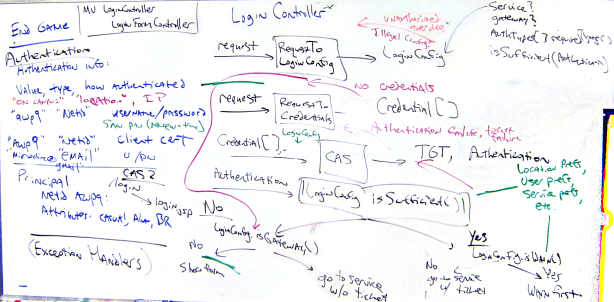 END GAME
MV LoginController
LoginFormController
Login Controller
Authentication
Authentication info:
Value, type, how authenticated
"on campus" "location", IP
"awp9" "Netid" username/password
"awp9" "Netid" client cert
email u/pw
gmail
Principal
Netid awp9:
Attributes: casual, Alum, BR
(Exception Handlers)
CAS 2
/login
login.jsp
request
RequestTo
LoginConfig
LoginConfig
Unauthorized
Service
Illegal Config
Service?
gateway?
AuthTypes[] requiredTypes()
isSufficient(Authentication)
no credentials
request
RequestTo
Credentials
Credential[]
Authentication failure, ticket
failure
Credential[],
LoginConfig
CAS
TGT, Authentication
Authentication
LoginConfig isSufficient()
Location prefs,
user prefs,
Service prefs,
etc.
No
LoginConfig.isGateway()
No
Show form
go to service
w/o ticket
Yes
LoginConfig.isWarn()
No
go to service
w/ ticket
Yes
Warn first